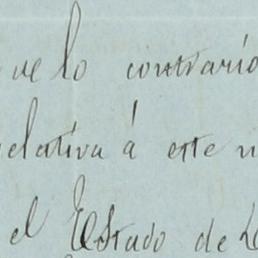 ue lo contrario
relativa á este
el Estado de